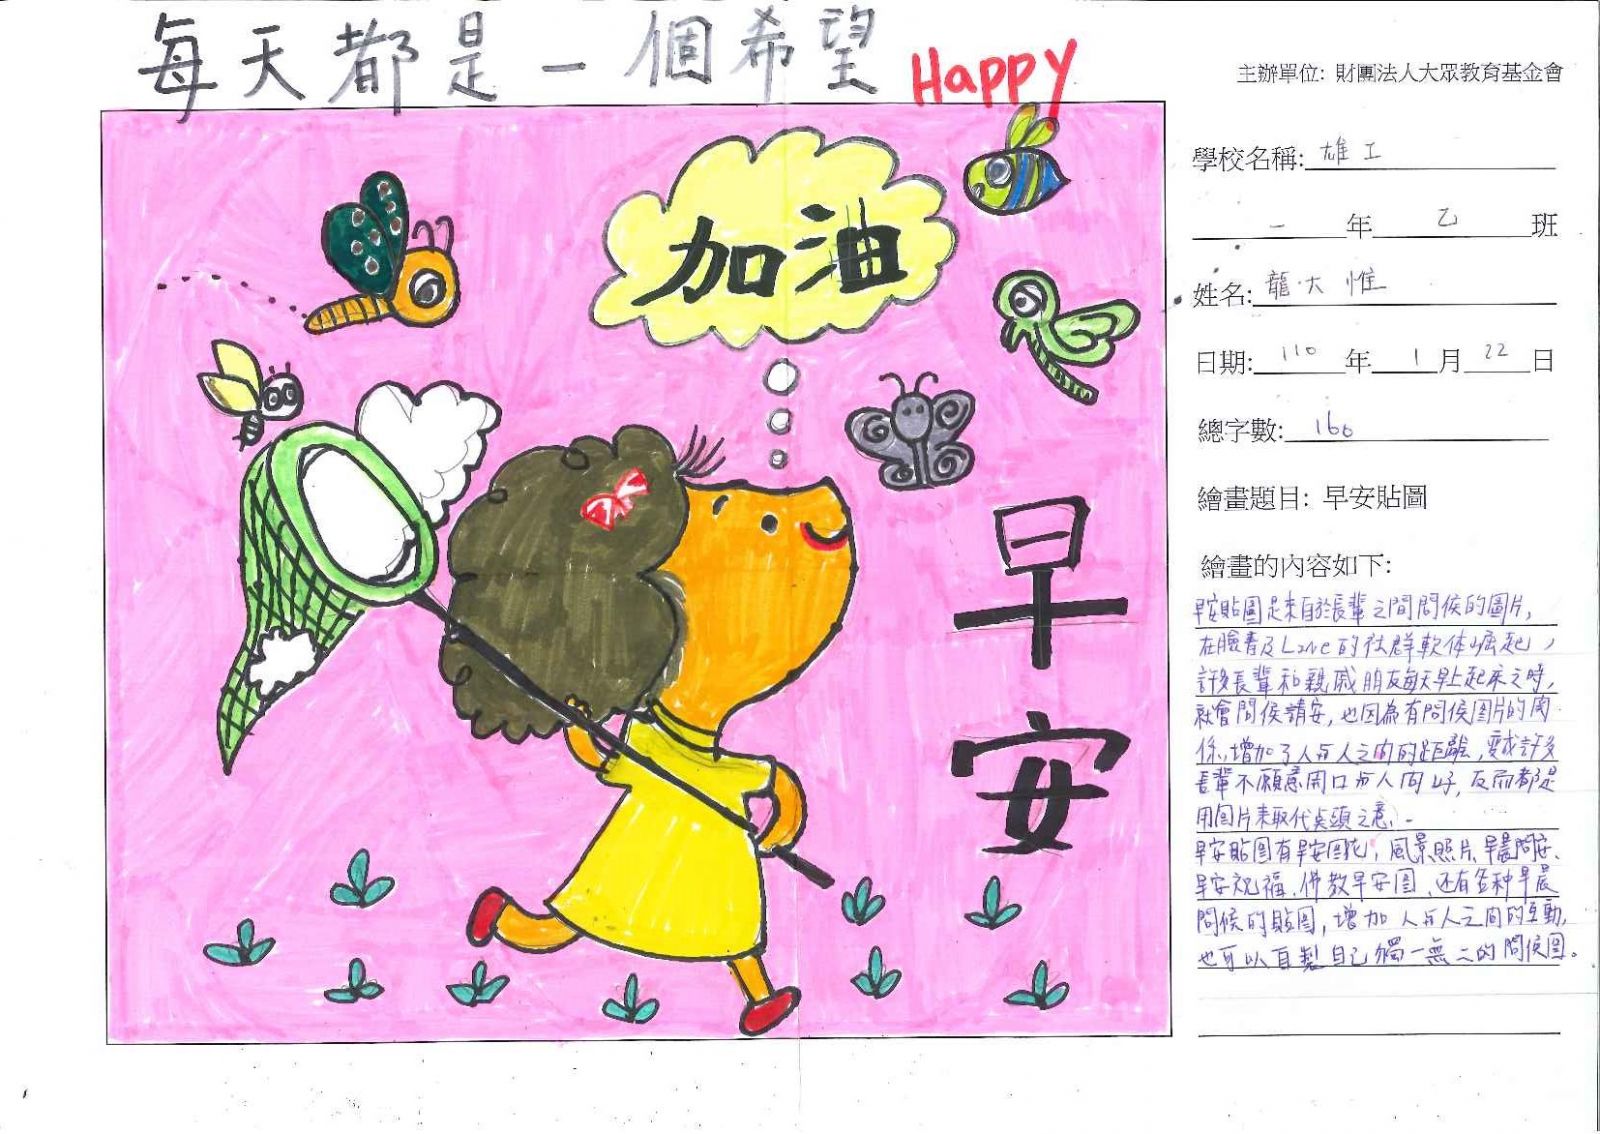 每天都是一個希望 Happy
主辦單位: 財團法人大眾教育基金會
加油
早安
學校名稱: 雄工
一年乙班
姓名: 龍大惟
日期: 110年1月22日
總字數: 166
繪畫題目: 早安貼圖
繪畫的內容如下:
早安貼圖是來自於長輩之間問侯的圖片,
在臉書及Line的社群軟体崛起,
許多長輩和親戚朋友每天早上起床之時,
就會問侯請安,也因為有問侯图片的関
係,增加了人与人之间的距離,變成許多
長輩不願意開口与人問好,反而都是
用图片來取代点頭之意。
早安貼圖有早安图,風景照片,早晨問安、
早安祝福、佛教早安图、还有各种早晨
問候的貼图,增加人与人之間的互動,
也可以自製自己獨一無二的問侯图。